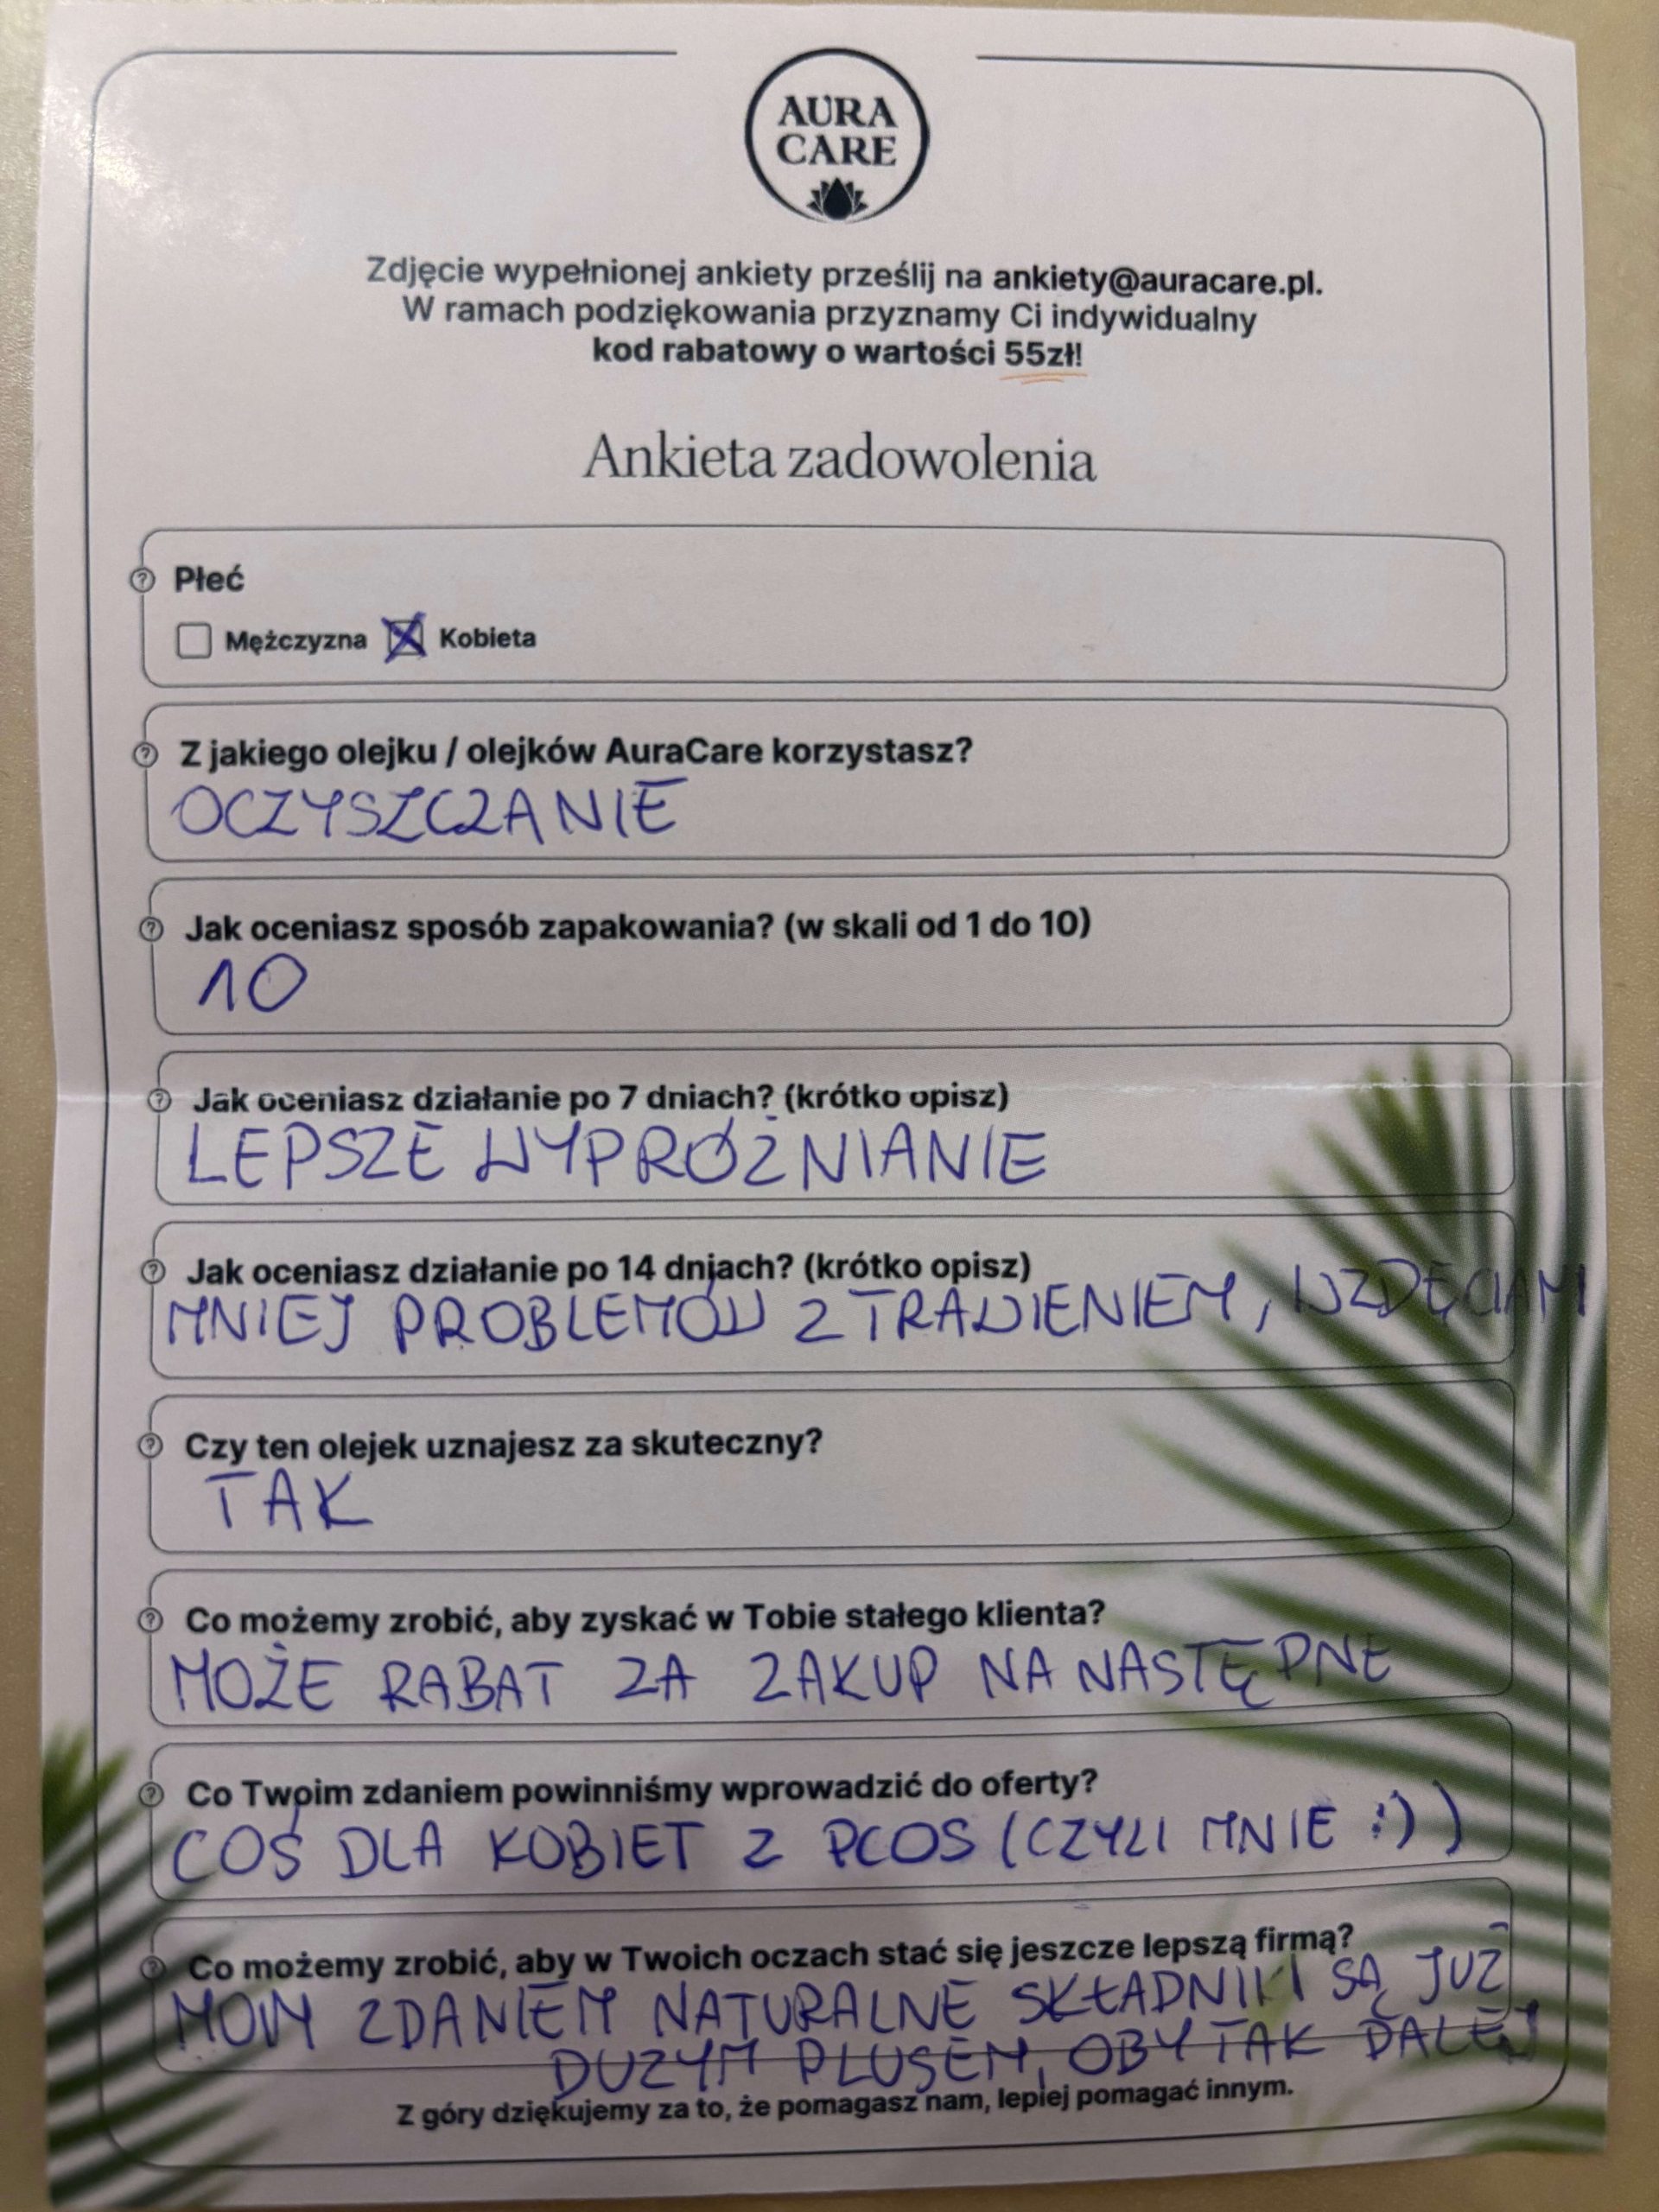 AURA
CARE
Zdjęcie wypełnionej ankiety prześlij na ankiety@auracare.pl.
W ramach podziękowania przyznamy Ci indywidualny
kod rabatowy o wartości 55zł!
Ankieta zadowolenia
Płeć
Mężczyzna Kobieta
Z jakiego olejku / olejków AuraCare korzystasz?
OCZYSZCZANIE
Jak oceniasz sposób zapakowania? (w skali od 1 do 10)
10
Jak oceniasz działanie po 7 dniach? (krótko opisz)
LEPSZE WYPRÓŻNIANIE
Jak oceniasz działanie po 14 dniach? (krótko opisz)
MNIEJ PROBLEMÓW Z TRAWIENIEM, WZDĘCIAMI
Czy ten olejek uznajesz za skuteczny?
TAK
Co możemy zrobić, aby zyskać w Tobie stałego klienta?
MOŻE RABAT ZA ZAKUP NA NASTĘPNE
Co Twoim zdaniem powinniśmy wprowadzić do oferty?
COŚ DLA KOBIET Z PCOS (CZYLI MNIE :))
Co możemy zrobić, aby w Twoich oczach stać się jeszcze lepszą firmą?
MOIM ZDANIEM NATURALNE SKŁADNIKI SĄ JUŻ
DUZYM PLUSEM, OBY TAK DALEJ
Z góry dziękujemy za to, że pomagasz nam, lepiej pomagać innym.